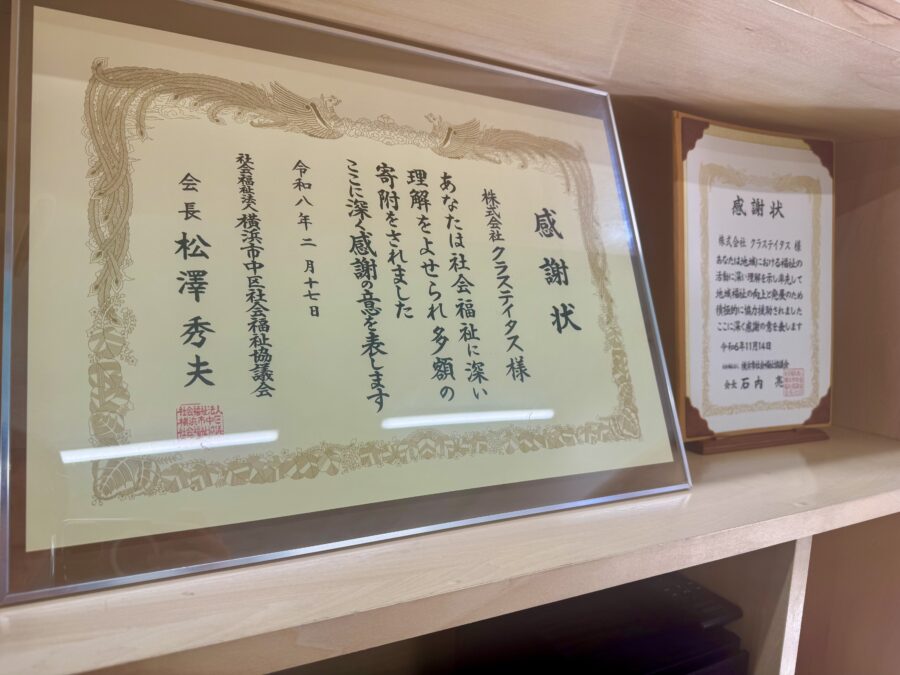 感謝状
株式会社 クラステイタス 様
あなたは社会福祉に深い
理解をよせられ多額の
寄附をされました
ここに深く感謝の意を表します
令和八年二月十七日
社会福祉法人 横浜市中区社会福祉協議会
会長 松澤秀夫
感謝状
株式会社 クラステイタス 様
あなたは地域における福祉の
活動に深い理解を示し率先して
地域福祉の向上と発展のため
積極的に協力援助されました
ここに深く感謝の意を表します
令和6年11月14日
横浜市社会福祉協議会
会長 石内 亮